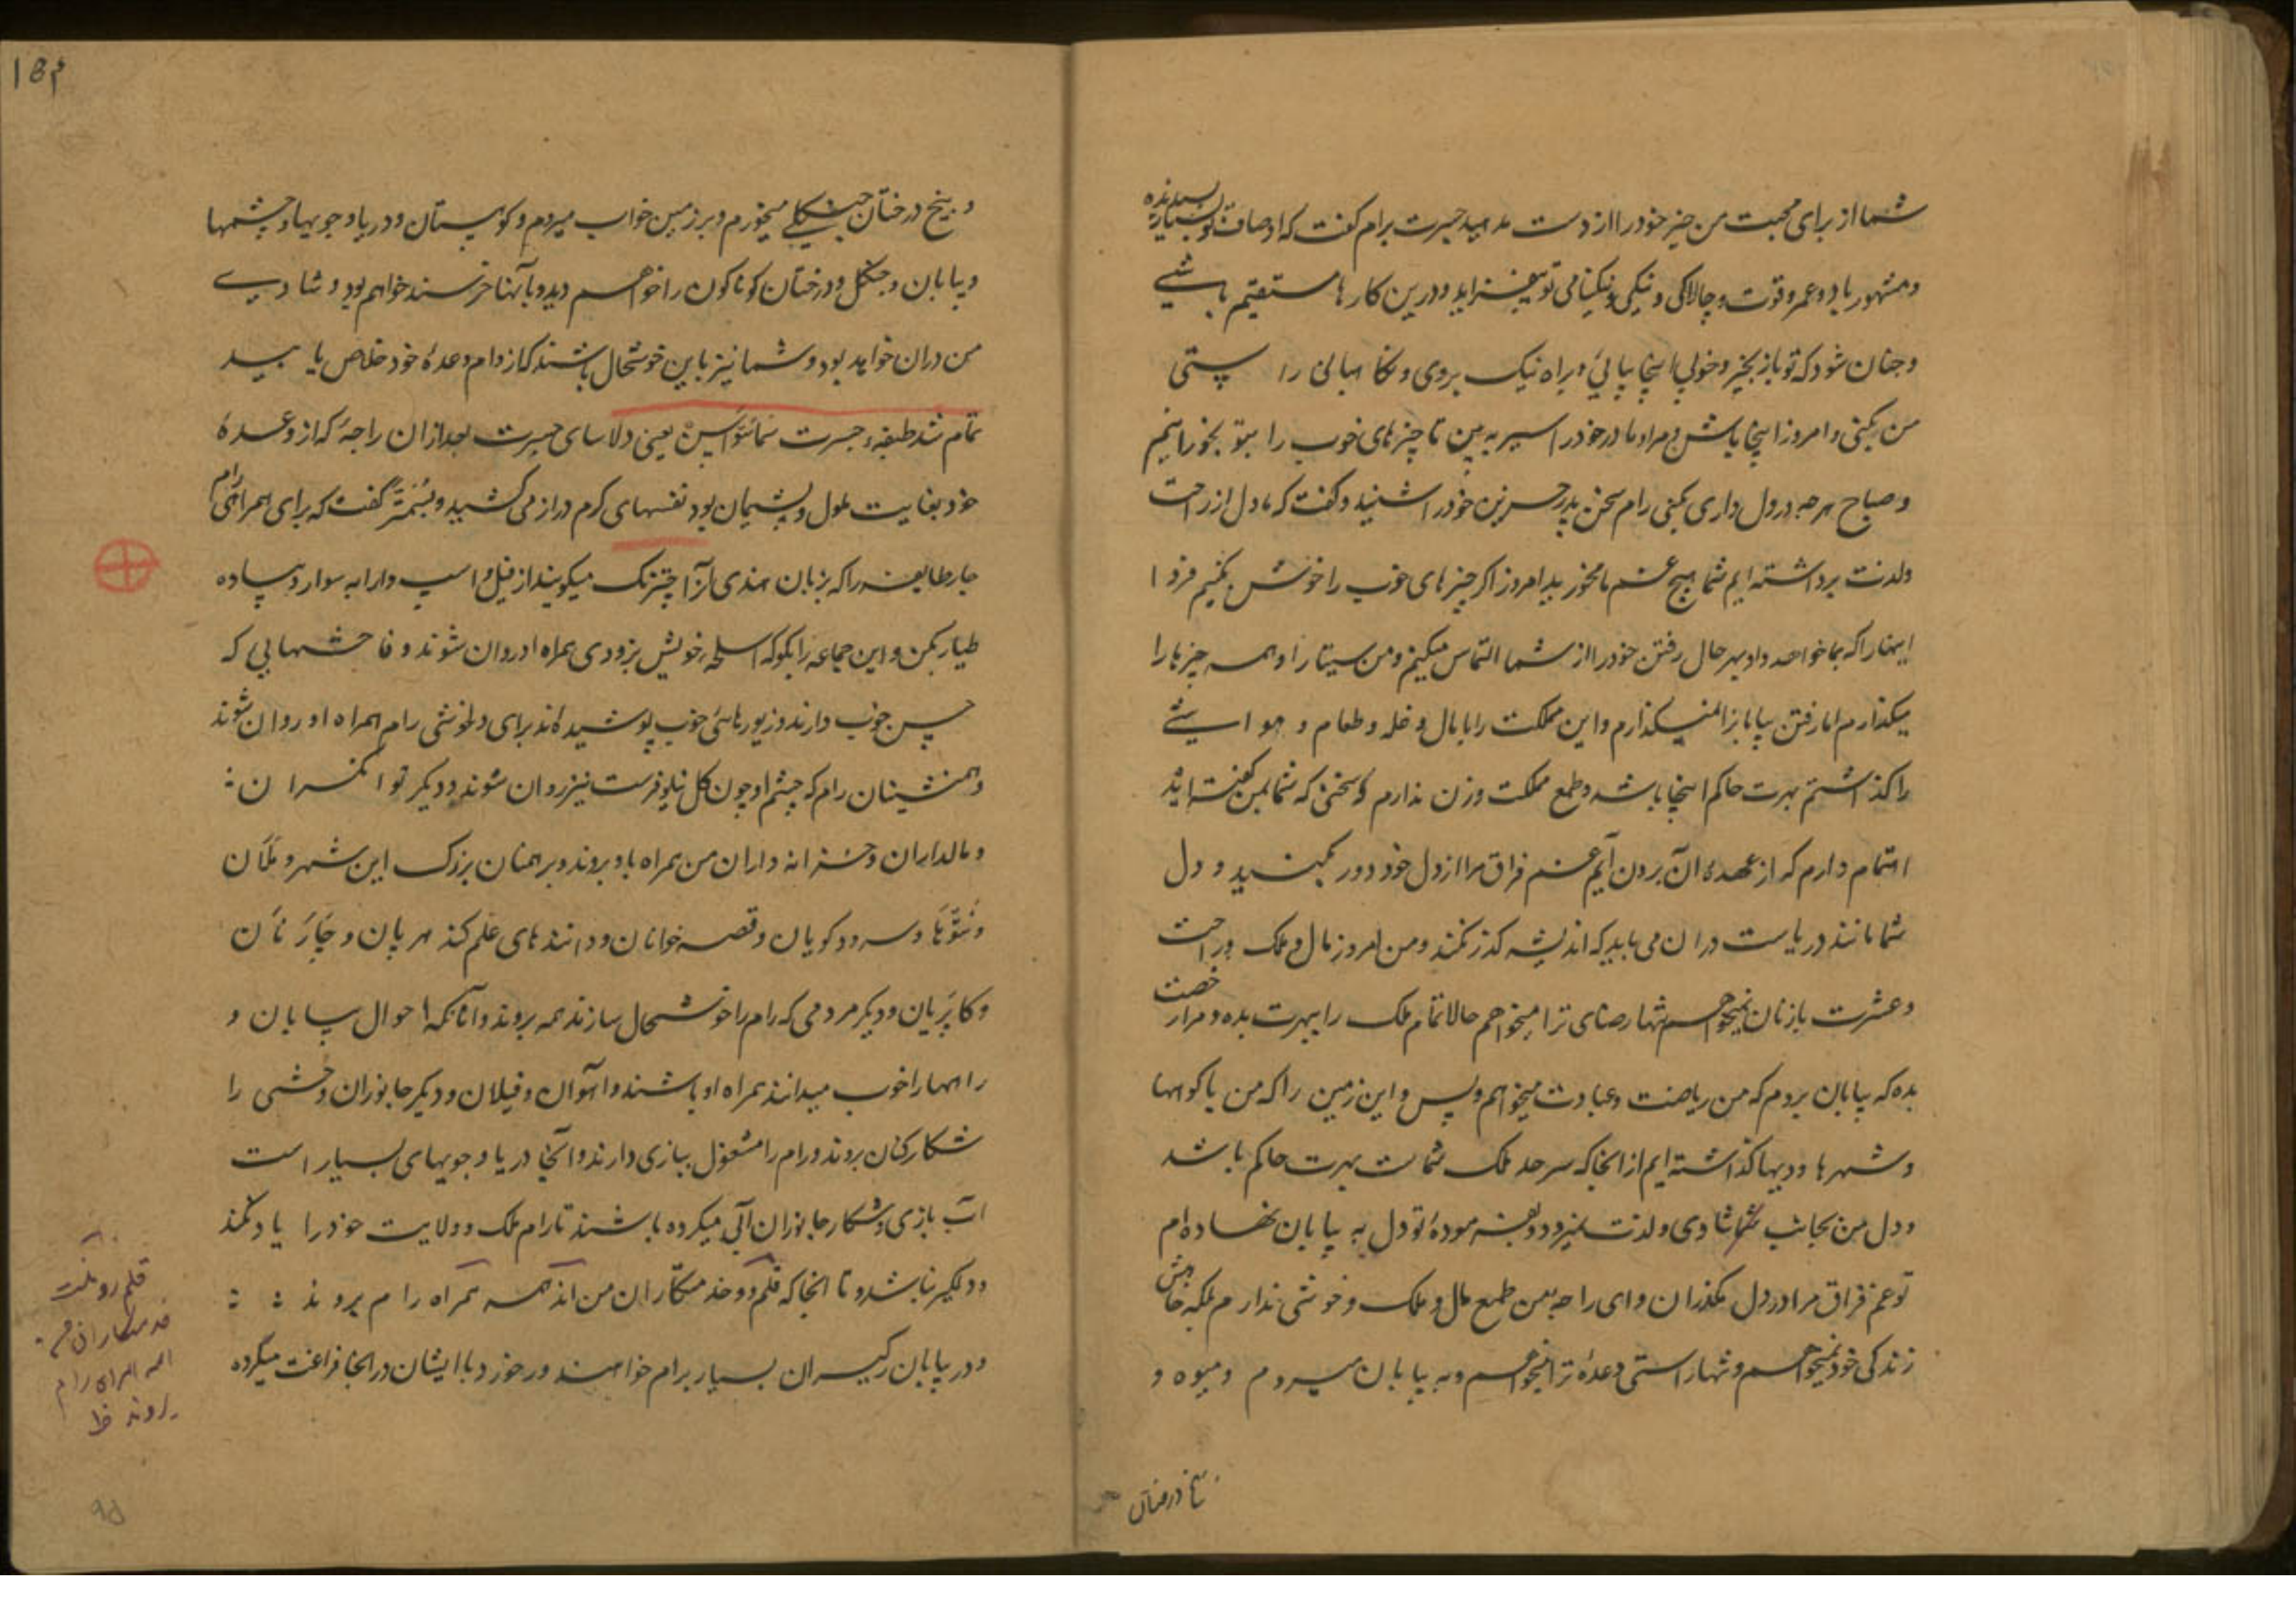 شما از برای محبت من چیز خود را از دست مدهید جسرت برام گفت که اوصاف تو بسیار پسندیده
و مشهور باد و عمر و قوت و چالاکی و نیکی و نیکنامی تو بیفزاید و درین کارها مستقیم باشی
و چنان شود که تو باز بخیر و خوبی اینجا بیائی و براه نیک بروی و نگاهبانی راستی
من بکنی و امروز اینجا باش و مرا و مادر خود را سیر به بین تا چیزهای خوب را بتو بخورانیم
و صباح هرچه در دل داری بکنی رام سخن پدر حزین خود را شنید و گفت که ما دل از راحت
و لذت برداشته ایم شما هیچ غم ما مخورید امروز اگر چیزهای خوب را خوش بکنیم فردا
اینها را که بما خواهد داد بهر حال رفتن خود را از شما التماس میکنم و من سیتا را و همه چیزها را
میگذارم اما رفتن بیابانرا نمیگذارم و این مملکت را با مال و غله و طعام و
را گذاشتم بهرت حاکم اینجا باشد و طمع مملکت و زن ندارم و سخنی که شما بمن گفته اید
اهتمام دارم که از عهده آن برون آیم غم فراق مرا از دل خود دور بکنید و دل
شما مانند دریاست دران می باید که اندیشه گذر نکند و من امروز مال و ملک و راحت
و عشرت با زنان نمیخواهم تنها رضای ترا میخواهم حالا تمام ملک را ببهرت بده و مرا رخصت
بده که بیابان بروم که من ریاضت و عبادت میخواهم و بس و این زمین را که من با کوهها
و شهرها و دیهها گذاشته ایم از انجا که سرحد ملک شماست بهرت حاکم باشد
و دل من بجانب شما شادی و لذت نمیرود و بفرموده تو دل به بیابان نهاده ام
تو غم فراق مرا در دل مگذران و ای راجه من طمع مال و ملک و خوشی ندارم بلکه خواهش
زندگی خود نمیخواهم و تنها راستی وعده ترا میخواهم و به بیابان میروم و میوه و
بیخ درختان
۱۵۴
و بیخ درختان جنگلی میخورم و بر زمین خواب میروم و کوهستان و دریا و جویها و چشمها
و بیابان و جنگل و درختان گوناگون را خواهم دید و بآنها خرسند خواهم بود و شادی
من دران خواهد بود و شما نیز باین خوشحال باشید که از دام وعده خود خلاص یابید
تمام شد طبقه جسرت سماسواسن یعنی دلاسای جسرت بعد ازان راجه که از وعده
خود بغایت ملول و پشیمان بود نفسهای گرم دراز می کشید و بسمنتر گفت که برای همراهی رام
چار طایفه را که بزبان هندی آنرا چترنگ میگویند از فیل و اسپ و ارابه سوار و پیاده
طیار بکن و این جماعه را بگو که اسلحه خویش بزودی همراه او روان شوند و فاحشهایی که
حسن خوب دارند و زیورهای خوب پوشیده اند برای دلخوشی رام همراه او روان شوند
و همنشینان رام که چشم او چون گل نیلوفرست نیز روان شوند و دیگر توانگران
و مالداران و خزانه داران من همراه باو بروند و برهمنان بزرگ این شهر و
و سرودگویان و قصه خوانان و داننده های علم
و دیگر مردمی که رام را خوشحال سازند همه بروند و آنانکه احوال بیابان و
راهها را خوب میدانند همراه او باشند و آهوان و فیلان و دیگر جانوران وحشی را
شکارکنان بروند و رام را مشغول ببازی دارند و آنجا دریا و جویهای بسیار است
آب بازی و شکار جانوران آبی میکرده باشند تا رام ملک و ولایت خود را یاد نکند
و دلگیر نباشد و تا انجا که قلمرو و خدمتگاران من اند همه همراه رام بروند
و در بیابان رکیسران بسیار برام خواهند برخورد با ایشان در انجا فراغت میکرده
قلم رو
خدمتگاران من
همه همراه رام
بروند